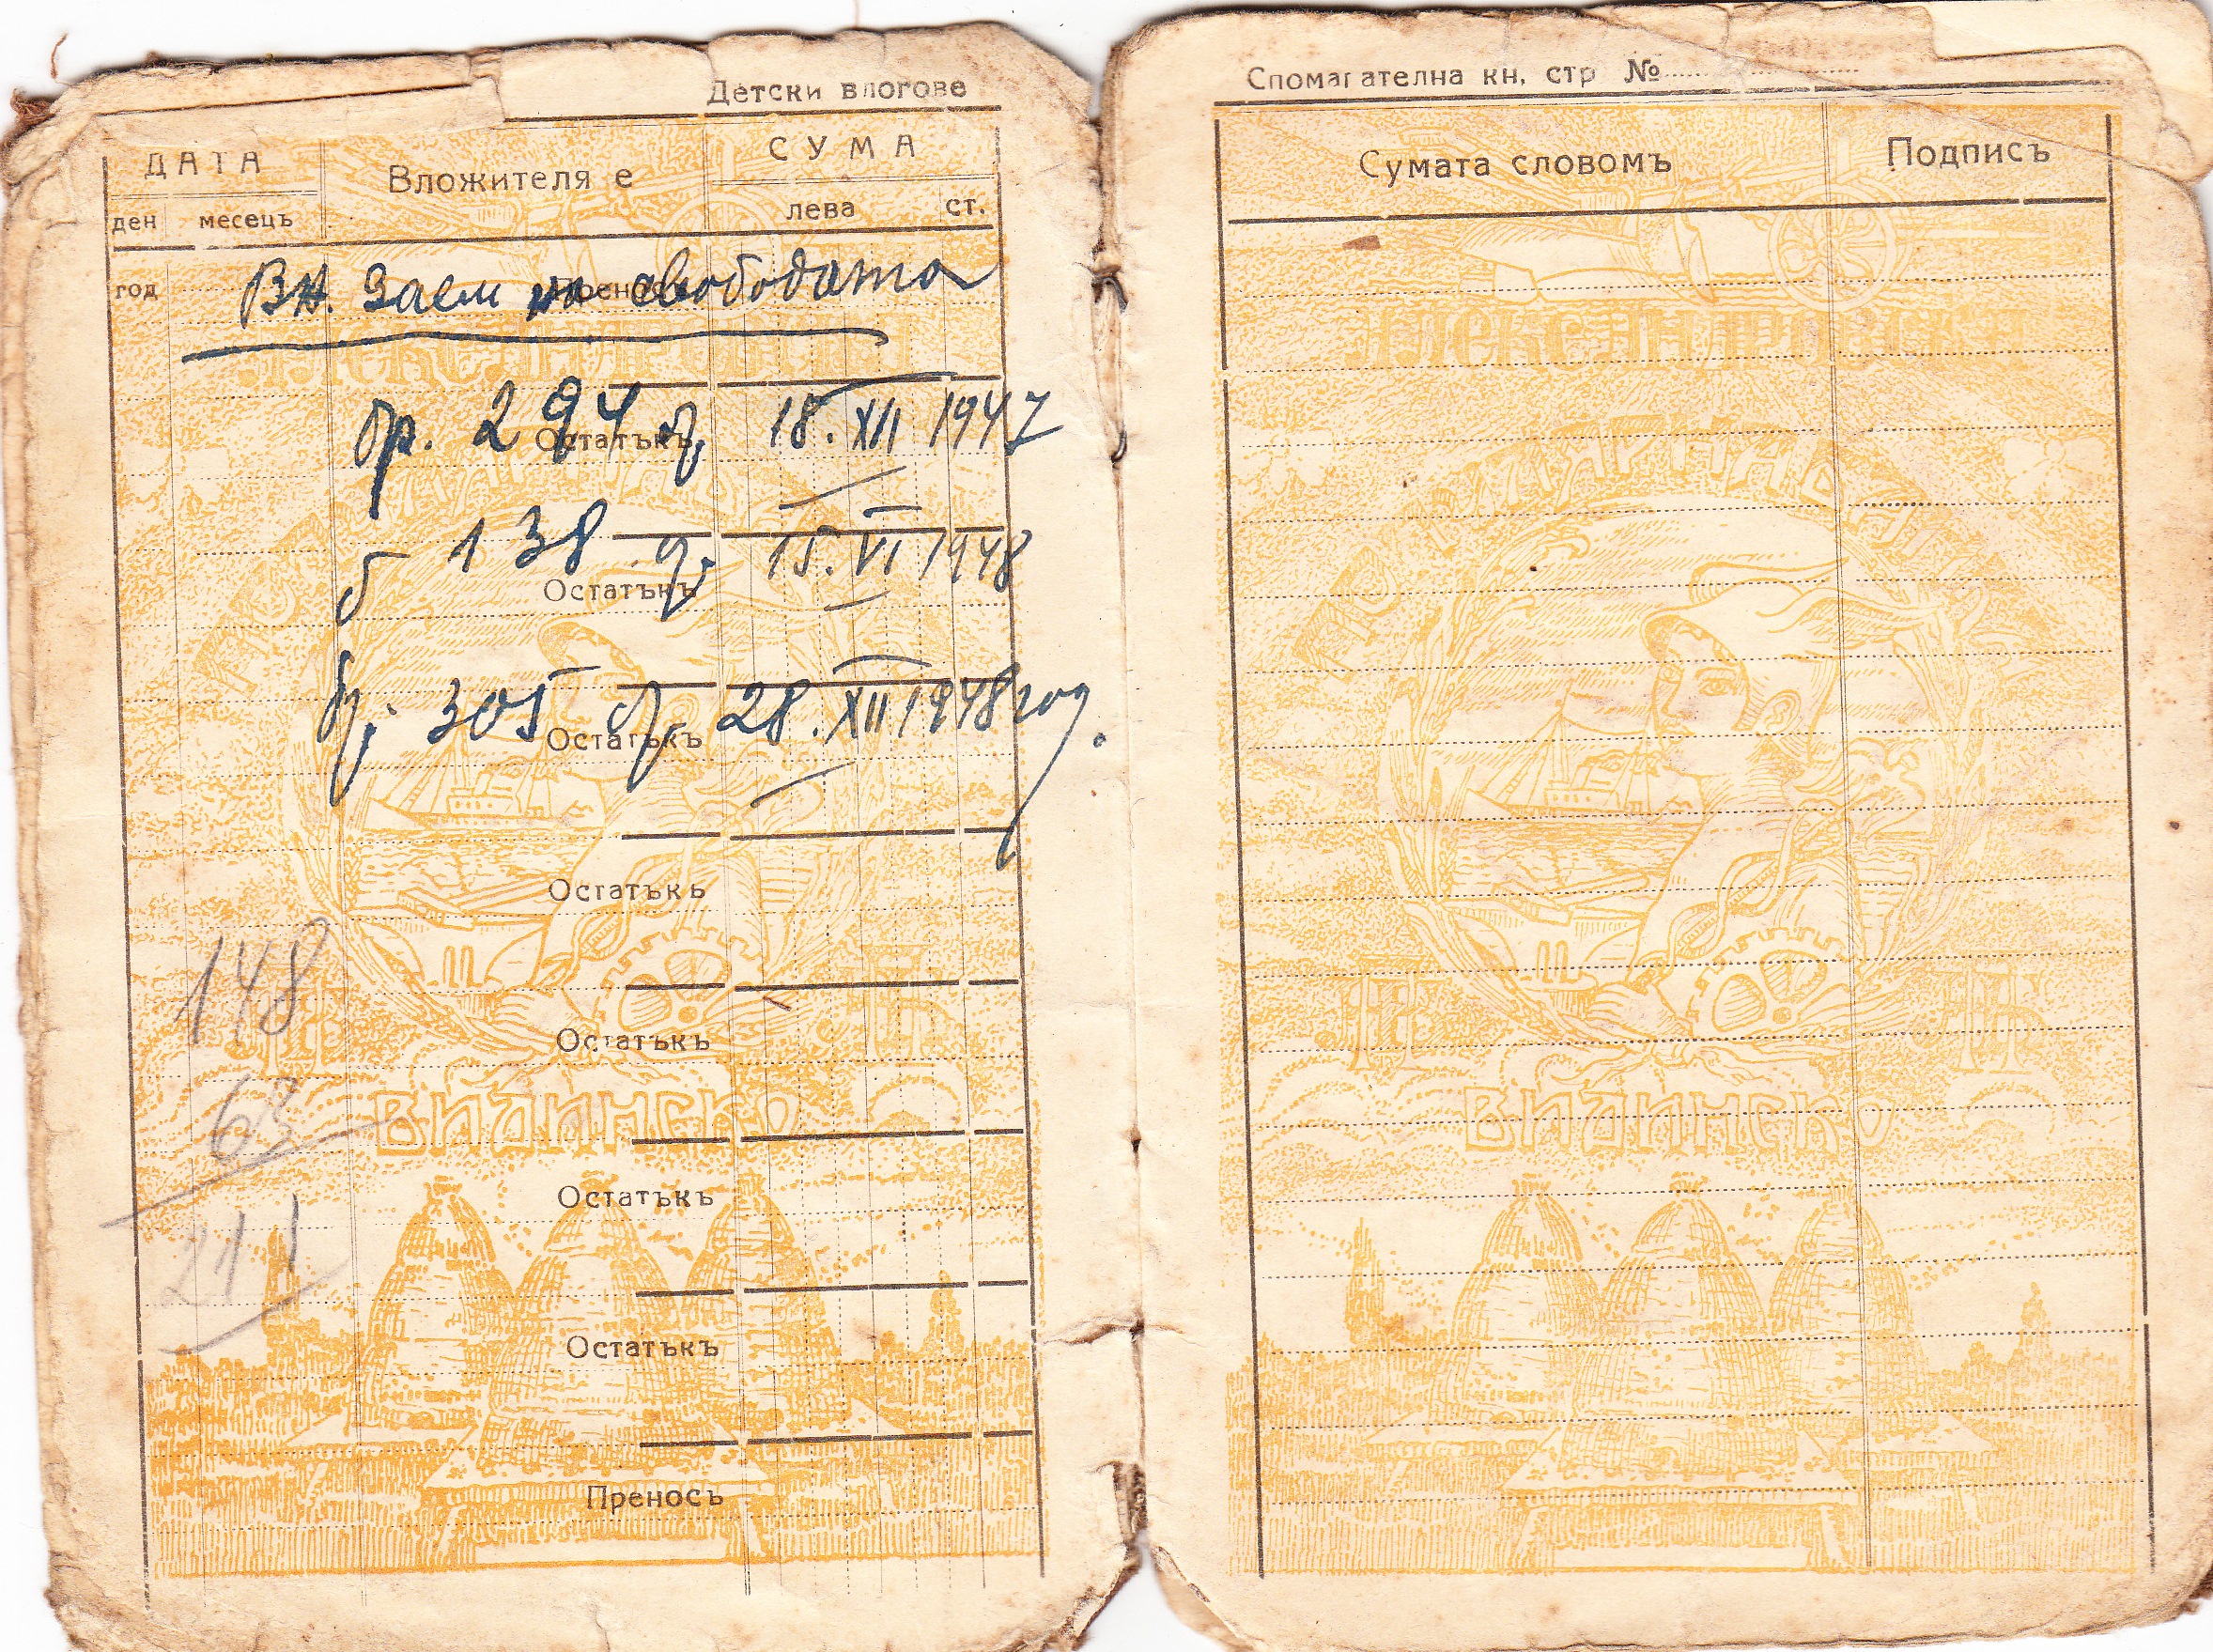 Детски влогове
ДАТА
Вложителя е
СУМА
ден
месецъ
лева
ст.
год
Вн. Заем на свободата
Пренос
бр. 294
18. XII 1947
Остатъкъ
138
15. VI 1948
Остатъкъ
305
28. XII 1948 год.
Остатъкъ
Остатъкъ
148
Остатъкъ
63
Остатъкъ
211
Остатъкъ
Преносъ
ВИДИНСКО
Спомагателна кн, стр №
Сумата словомъ
Подписъ
АЛЕКСАНДРОВСКА
ВИДИНСКО